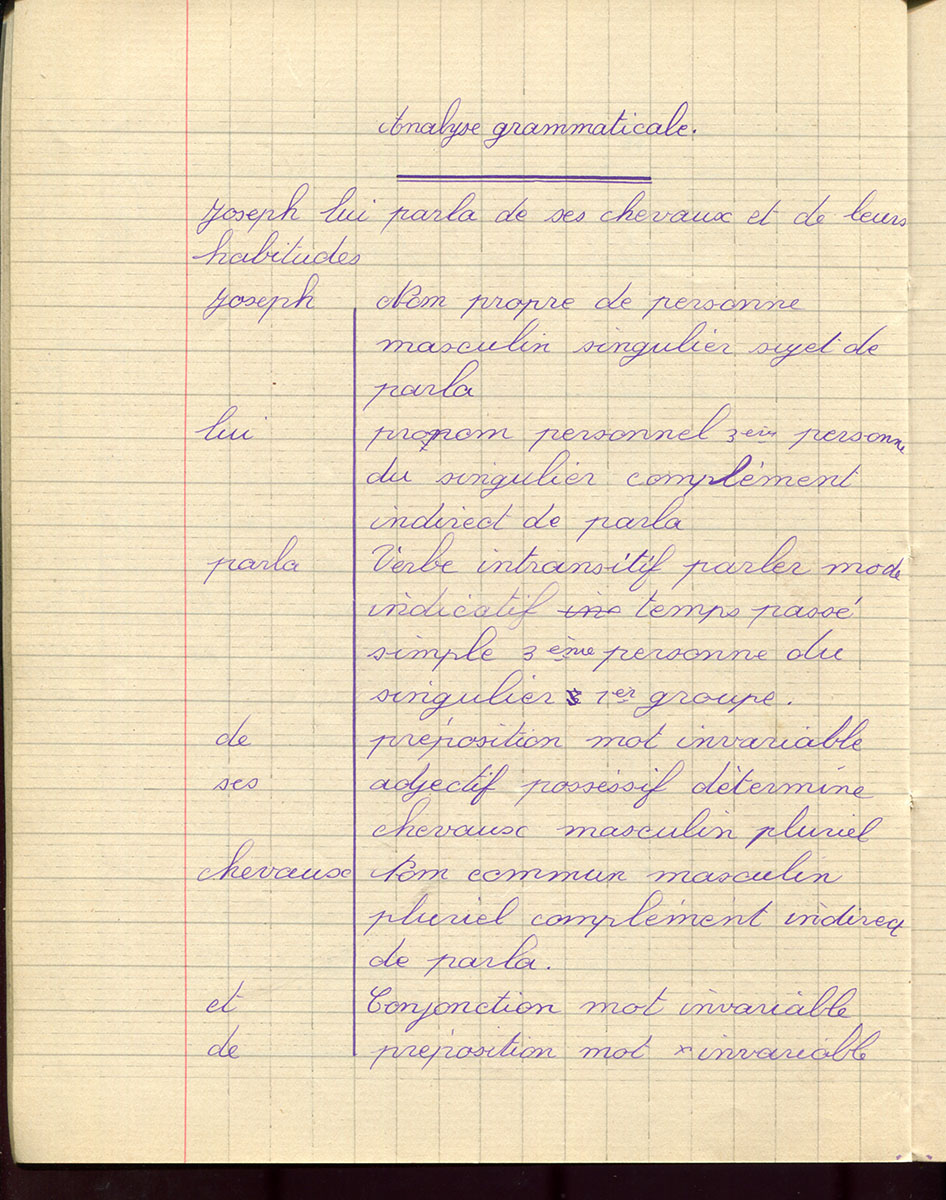 Analyse grammaticale.
Joseph lui parla de ses chevaux et de leurs
habitudes
Joseph Nom propre de personne
masculin singulier sujet de
parla
lui pronom personnel 3ème personne
du singulier complément
indirect de parla
parla Verbe intransitif parler mode
indicatif temps passé
simple 3ème personne du
singulier 1er groupe.
de préposition mot invariable
ses adjectif possessif détermine
chevaux masculin pluriel
chevaux Nom commun masculin
pluriel complément indirect
de parla.
et Conjonction mot invariable
de préposition mot invariable